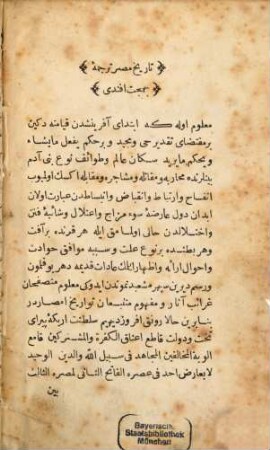 تاریخ مصر ترجمهٔ
بهجت افندی
معلوم اوله که ابتدای آفرینشدن قیامته دکین
بر مقتضای تقدیر حی و مجید و بر حکم یفعل مایشاء
و یحکم مایرید سکان عالم و طوائف نوع بنی آدم
بینلرنده محاربه و مقاتله و مشاجره و مقابله اکسک اولمیوب
انفتاح و ارتباط و انقباض و انبساطدن عبارت اولان
ابدان دول عارضهٔ سوء مزاج و اعتلال و شائبهٔ فتن
و اختلالدن خالی اولمامق ایله هر قرنده بر آفت
و هر بطنده بر نوع علت و سببه موافق حوادث
و احوال ارائه و اظهار ایتمک عادات قدیمهٔ دهر بوقلمون
و رسم دیرین سپهر مشعبد نموندن ایدوکی معلوم متصفحان
غرائب آثار و مفهوم متتبعان تواریخ امصاردر
بنابرین حالا رونق افزو ز دیهیم سلطنت اریکه پیرای
تخت و دولت قاطع اعناق الکفرة والمشرکین قامع
الویة المخالفین المجاهد فی سبیل الله والدین الوحید
لا یعارض احد فی عصره الفاتح الثانی لمصره الثالث
بین
Bayerische
Staatsbibliothek
München